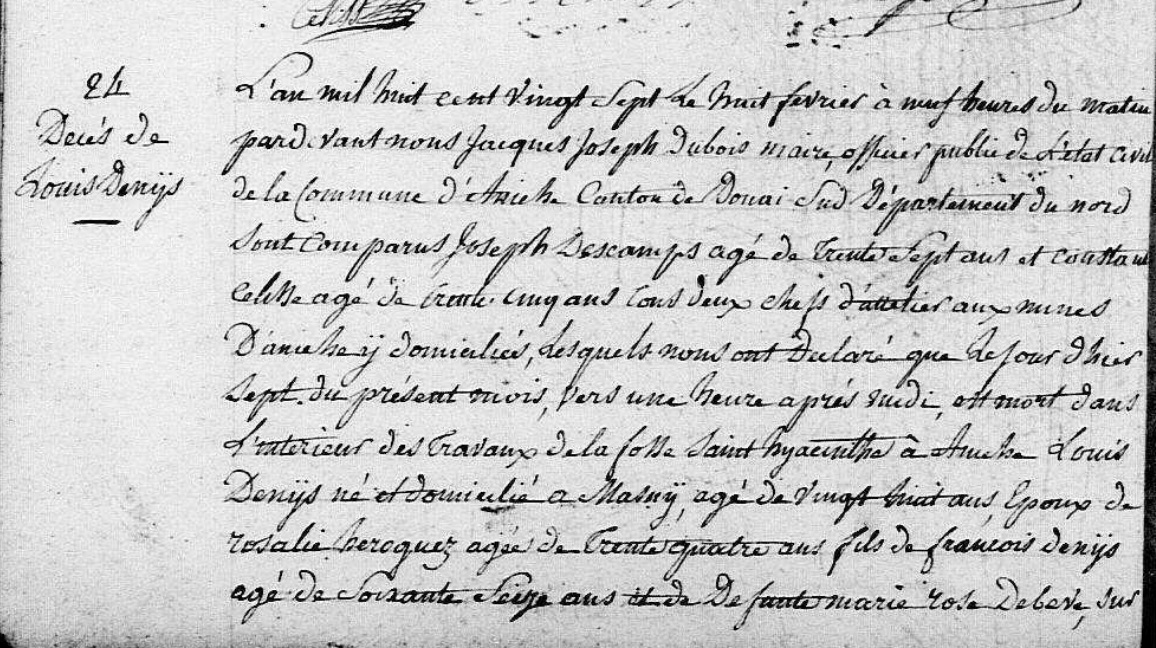 24
Decés de
Louis Denijs
L'an mil huit cent vingt sept Le huit fevrier à neuf heures du matin
pardevant nous Jacques Joseph Dubois maire, officier public de L'état civil
de la Commune d'Aniche Canton de Douai Sud Département du nord
Sont Comparus Joseph Descamps agé de Trente Sept ans et constant
Celisse agé de trente cinq ans tous deux chefs d'attelier aux mines
D'aniche ÿ domiciliés, Lesquels nous ont Declaré que Le jour d'hier
Sept du présent mois, vers une heure aprés midi, est mort dans
L'interieur des Travaux de la fosse Saint hyacinthe à Aniche Louis
Denijs né et domicilié a Masnÿ, agé de vingt huit ans, Epoux de
rosalie heroguez agée de Trente quatre ans fils de francois denijs
agé de Soixante Seize ans et de Defunte marie rose Debeve, sur